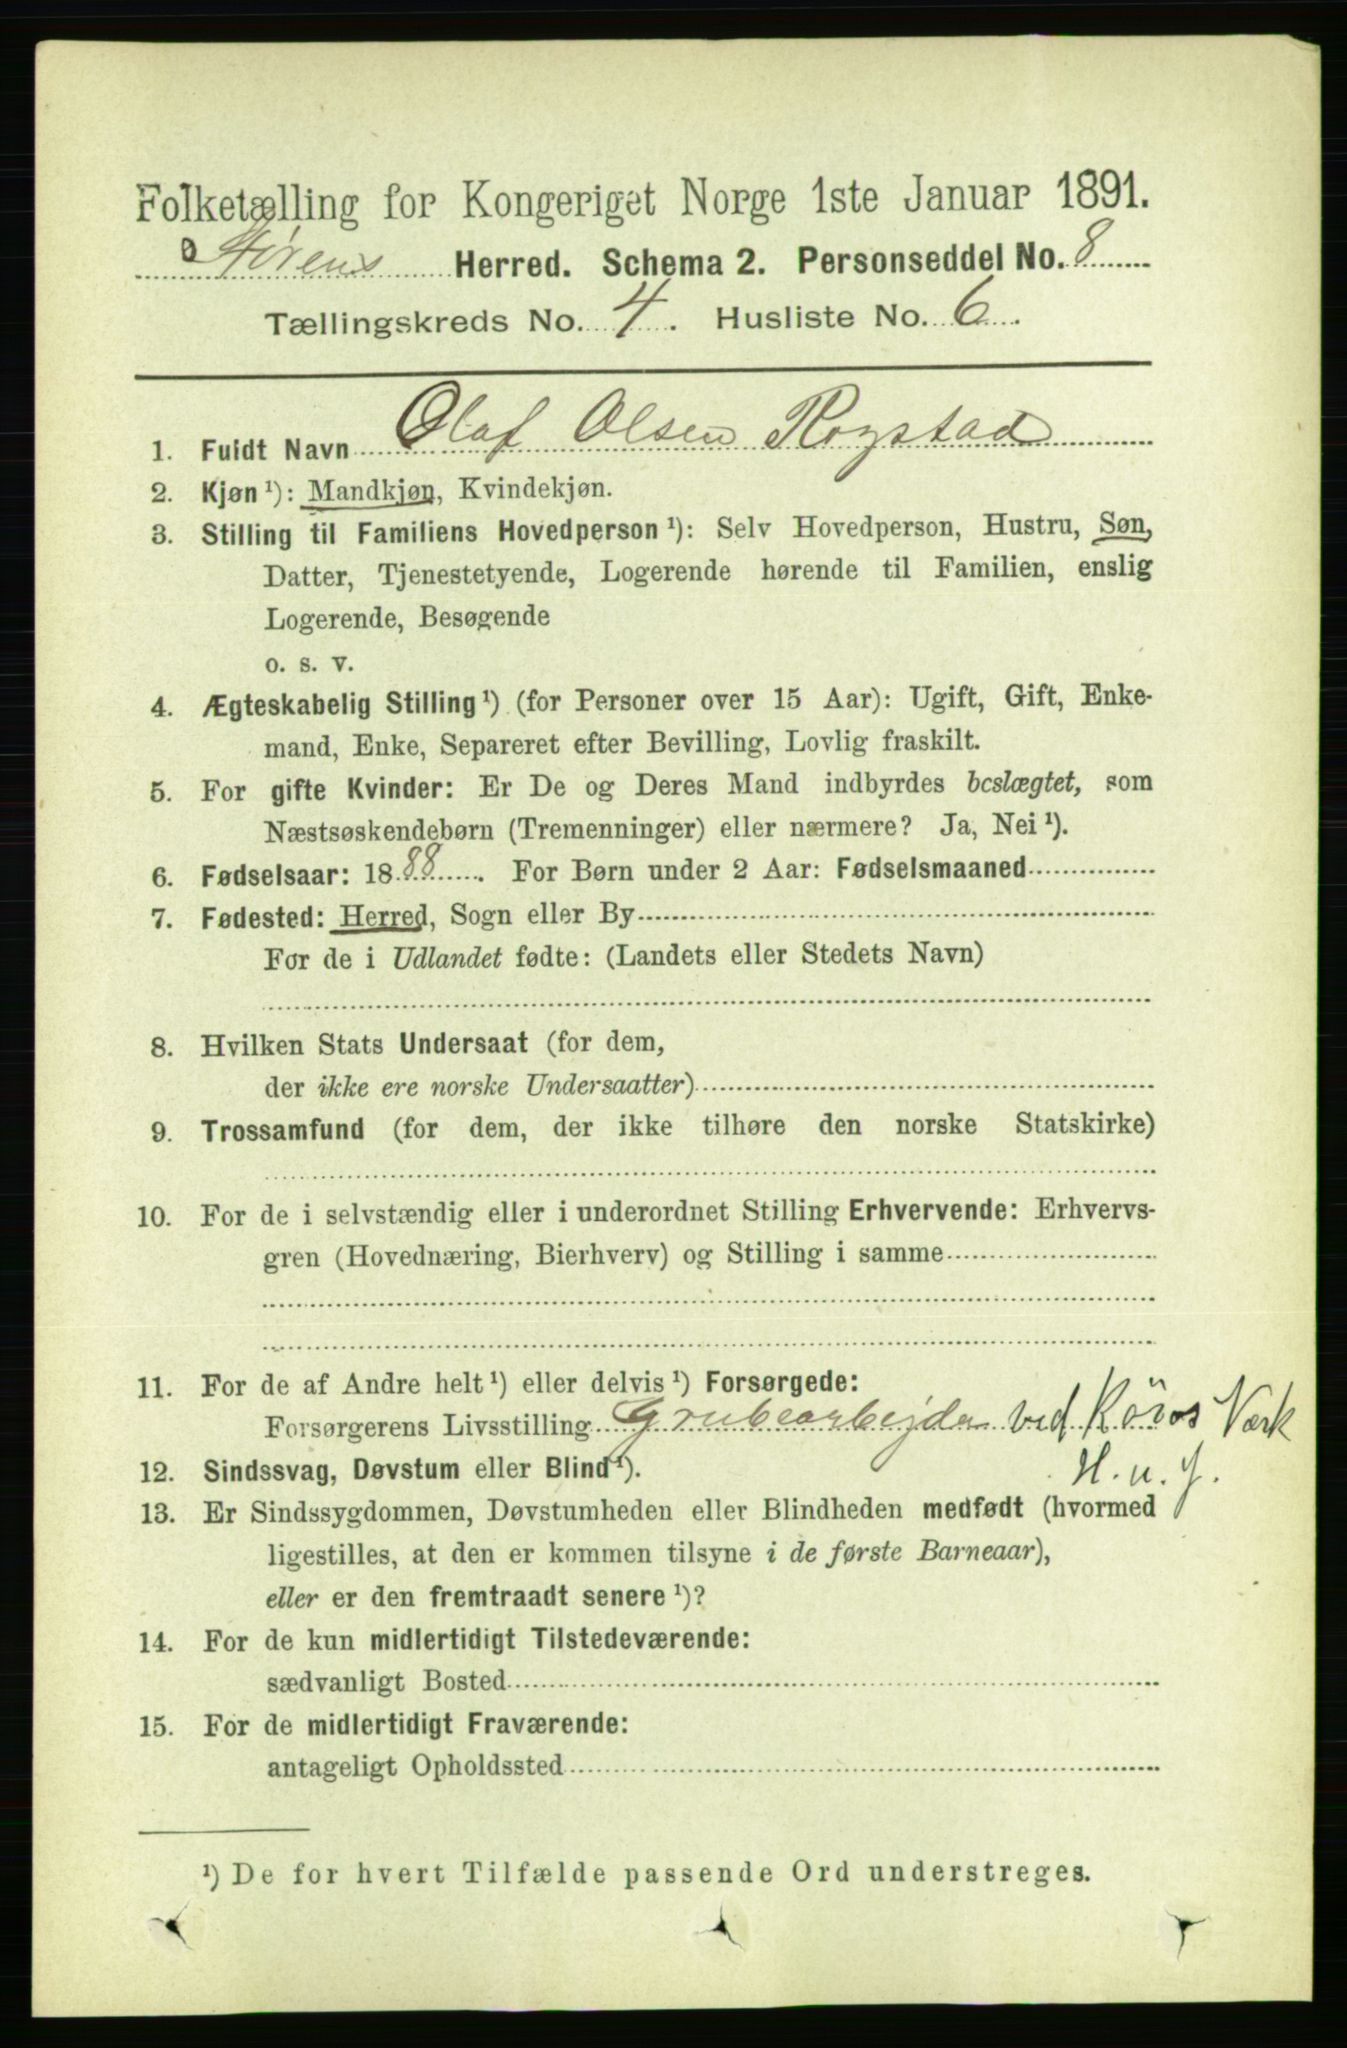 Folketælling for Kongeriget Norge 1ste Januar 1891.
Størens Herred. Schema 2. Personseddel No. 8
Tællingskreds No. 4. Husliste No. 6.
1. Fuldt Navn Olaf Olsen Rogstad
2. Kjøn ¹): Mandkjøn, Kvindekjøn.
3. Stilling til Familiens Hovedperson ¹): Selv Hovedperson, Hustru, Søn,
Datter, Tjenestetyende, Logerende hørende til Familien, enslig
Logerende, Besøgende
o. s. v.
4. Ægteskabelig Stilling ¹) (for Personer over 15 Aar): Ugift, Gift, Enke-
mand, Enke, Separeret efter Bevilling, Lovlig fraskilt.
5. For gifte Kvinder: Er De og Deres Mand indbyrdes beslægtet, som
Næstsøskendebørn (Tremenninger) eller nærmere? Ja, Nei ¹).
6. Fødselsaar: 1888. For Børn under 2 Aar: Fødselsmaaned
7. Fødested: Herred, Sogn eller By
For de i Udlandet fødte: (Landets eller Stedets Navn)
8. Hvilken Stats Undersaat (for dem,
der ikke ere norske Undersaatter)
9. Trossamfund (for dem, der ikke tilhøre den norske Statskirke)
10. For de i selvstændig eller i underordnet Stilling Erhvervende: Erhvervs-
gren (Hovednæring, Bierhverv) og Stilling i samme
11. For de af Andre helt ¹) eller delvis ¹) Forsørgede:
Forsørgerens Livsstilling Grubearbejder ved Röros Værk
H. u. J.
12. Sindssvag, Døvstum eller Blind ¹).
13. Er Sindssygdommen, Døvstumheden eller Blindheden medfødt (hvormed
ligestilles, at den er kommen tilsyne i de første Barneaar),
eller er den fremtraadt senere ¹)?
14. For de kun midlertidigt Tilstedeværende:
sædvanligt Bosted
15. For de midlertidigt Fraværende:
antageligt Opholdssted
¹) De for hvert Tilfælde passende Ord understreges.